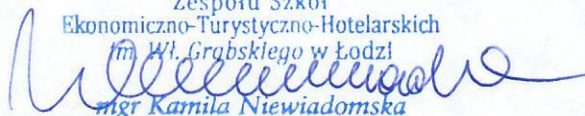 Zespołu Szkół
Ekonomiczno-Turystyczno-Hotelarskich
im. Wł. Grabskiego w Łodzi
mgr Kamila Niewiadomska